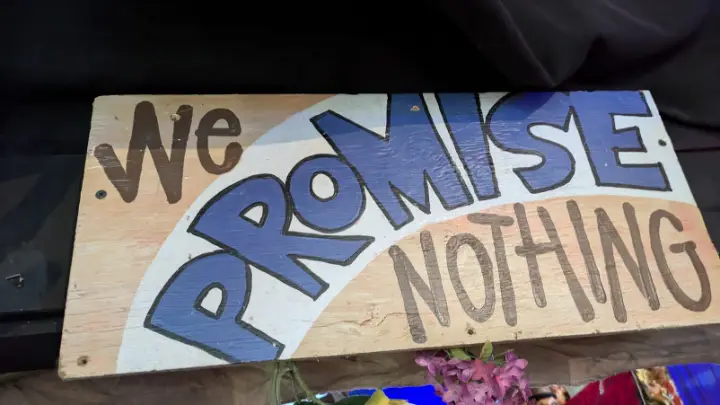 We
PROMISE
NOTHING